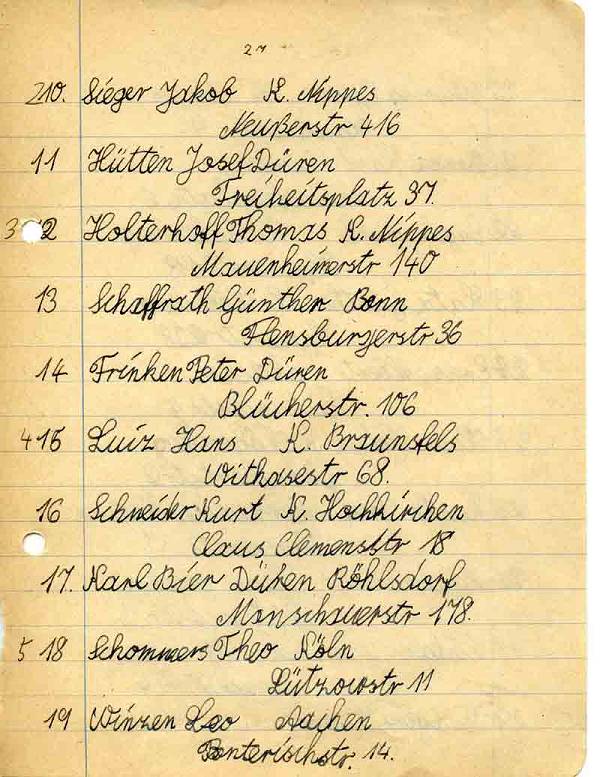 27
210. Sieger Jakob K. Nippes
Neußerstr 416
11 Hütten Josef Düren
Freiheitsplatz 37.
3 12 Holterhoff Thomas K. Nippes
Mauenheimerstr 140
13 Schaffrath Günther Bonn
Flensburgerstr 36
14 Frinken Peter Düren
Blücherstr. 106
4 15 Luiz Hans K. Braunsfels
Withasestr 68.
16 Schneider Kurt K. Hochkirchen
Claus Clemensstr 18
17. Karl Bier Düren Röhlsdorf
Monschauerstr 178.
5 18 Schommers Theo Köln
Lützowstr 11
19 Winzen Leo Aachen
14.